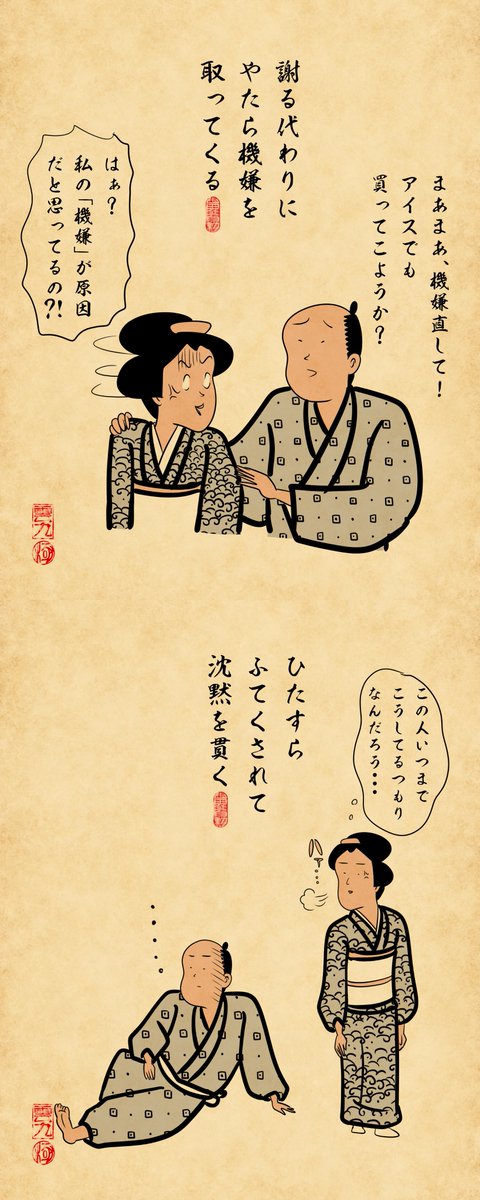 謝る代わりに
やたら機嫌を
取ってくる
まあまあ、機嫌直して！
アイスでも
買ってこようか？
はぁ？
私の「機嫌」が原因
だと思ってるの?!
ひたすら
ふてくされて
沈黙を貫く
この人いつまで
こうしてるつもり
なんだろう・・・
ハァ…